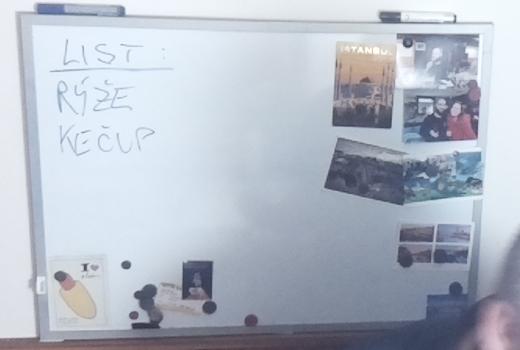 LIST:
RÝŽE
KEČUP
ISTANBUL
I ♥